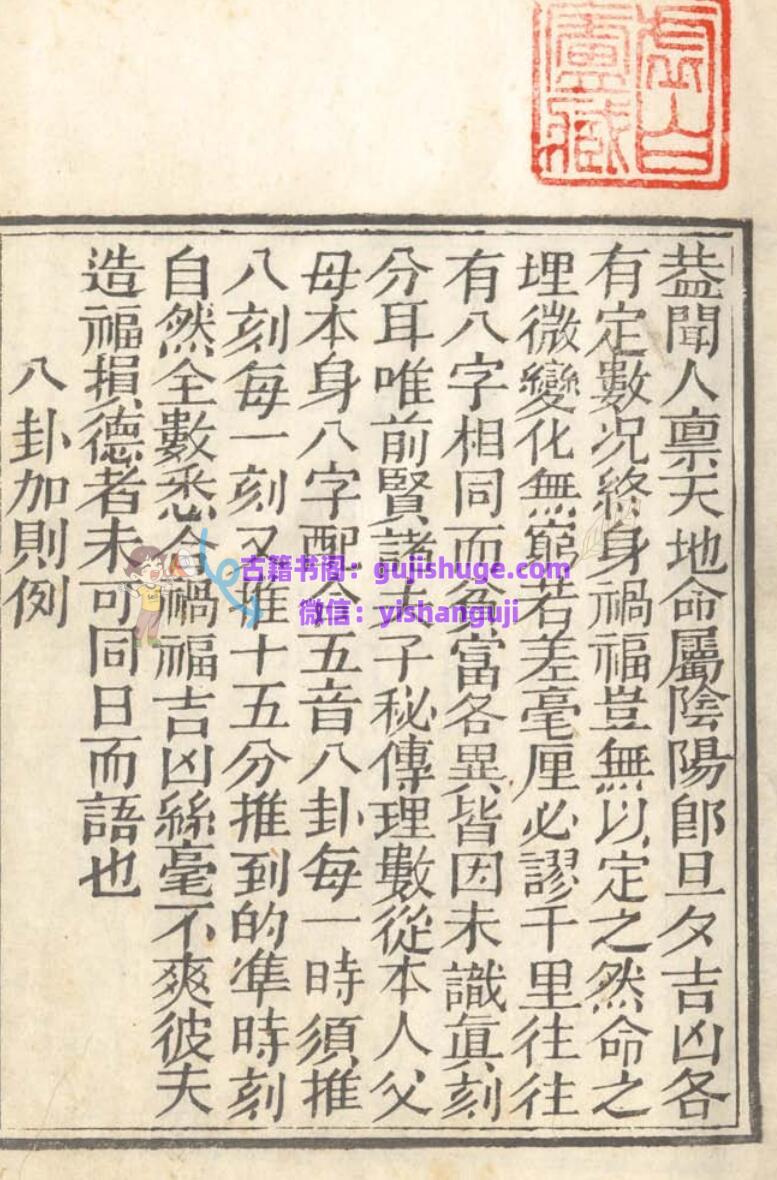 虛白
廬藏
葢聞人禀天地命屬陰陽卽旦夕吉凶各
有定數况終身禍福豈無以定之然命之
埋微變化無窮若差毫厘必謬千里往往
有八字相同而貧富各異皆因未識眞刻
分耳唯前賢諸夫子秘傳理數從本人父
母本身八字配合五音八卦每一時須推
八刻每一刻又推十五分推到的凖時刻
自然全數悉合禍福吉凶絲毫不爽彼夫
造福損德者未可同日而語也
八卦加則例
古籍书阁：gujishuge.com
微信：yishanguji